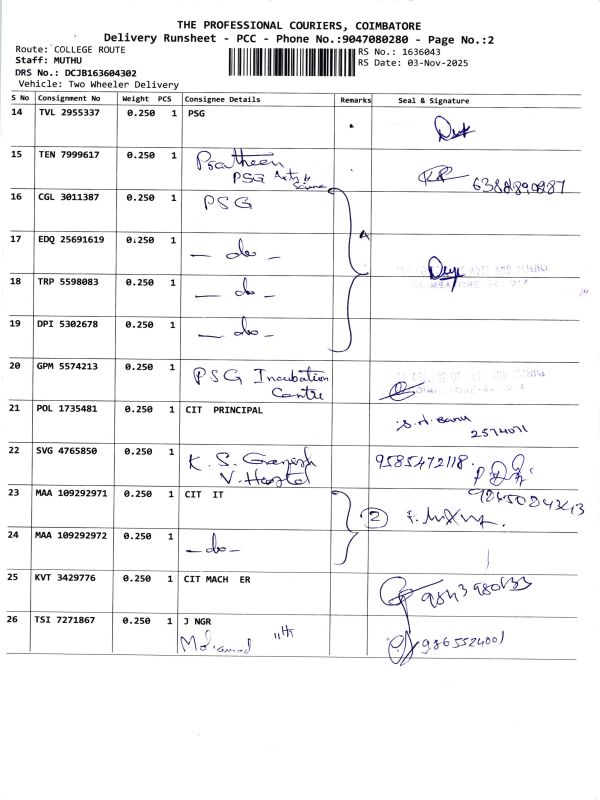 THE PROFESSIONAL COURIERS, COIMBATORE
Delivery Runsheet - PCC - Phone No.:9047080280 - Page No.:2
Route: COLLEGE ROUTE
RS No.: 1636043
Staff: MUTHU
RS Date: 03-Nov-2025
DRS No.: DCJB163604302
Vehicle: Two Wheeler Delivery
S No Consignment No Weight PCS Consignee Details Remarks Seal & Signature
14 TVL 2955337 0.250 1 PSG
15 TEN 7999617 0.250 1 Pratheen
PSG Arts & Science
16 CGL 3011387 0.250 1 PSG
4
17 EDQ 25691619 0.250 1 — do —
18 TRP 5598083 0.250 1 — do —
19 DPI 5302678 0.250 1 — do —
20 GPM 5574213 0.250 1 PSG Incubation
Centre
21 POL 1735481 0.250 1 CIT PRINCIPAL
S.H. Banu
2574071
22 SVG 4765850 0.250 1 K. S. Ganesh 9585472118.
V. Hostel
23 MAA 109292971 0.250 1 CIT IT 2
24 MAA 109292972 0.250 1 —do—
25 KVT 3429776 0.250 1 CIT MACH ER
26 TSI 7271867 0.250 1 J NGR
Mohamad 11th 9865524001